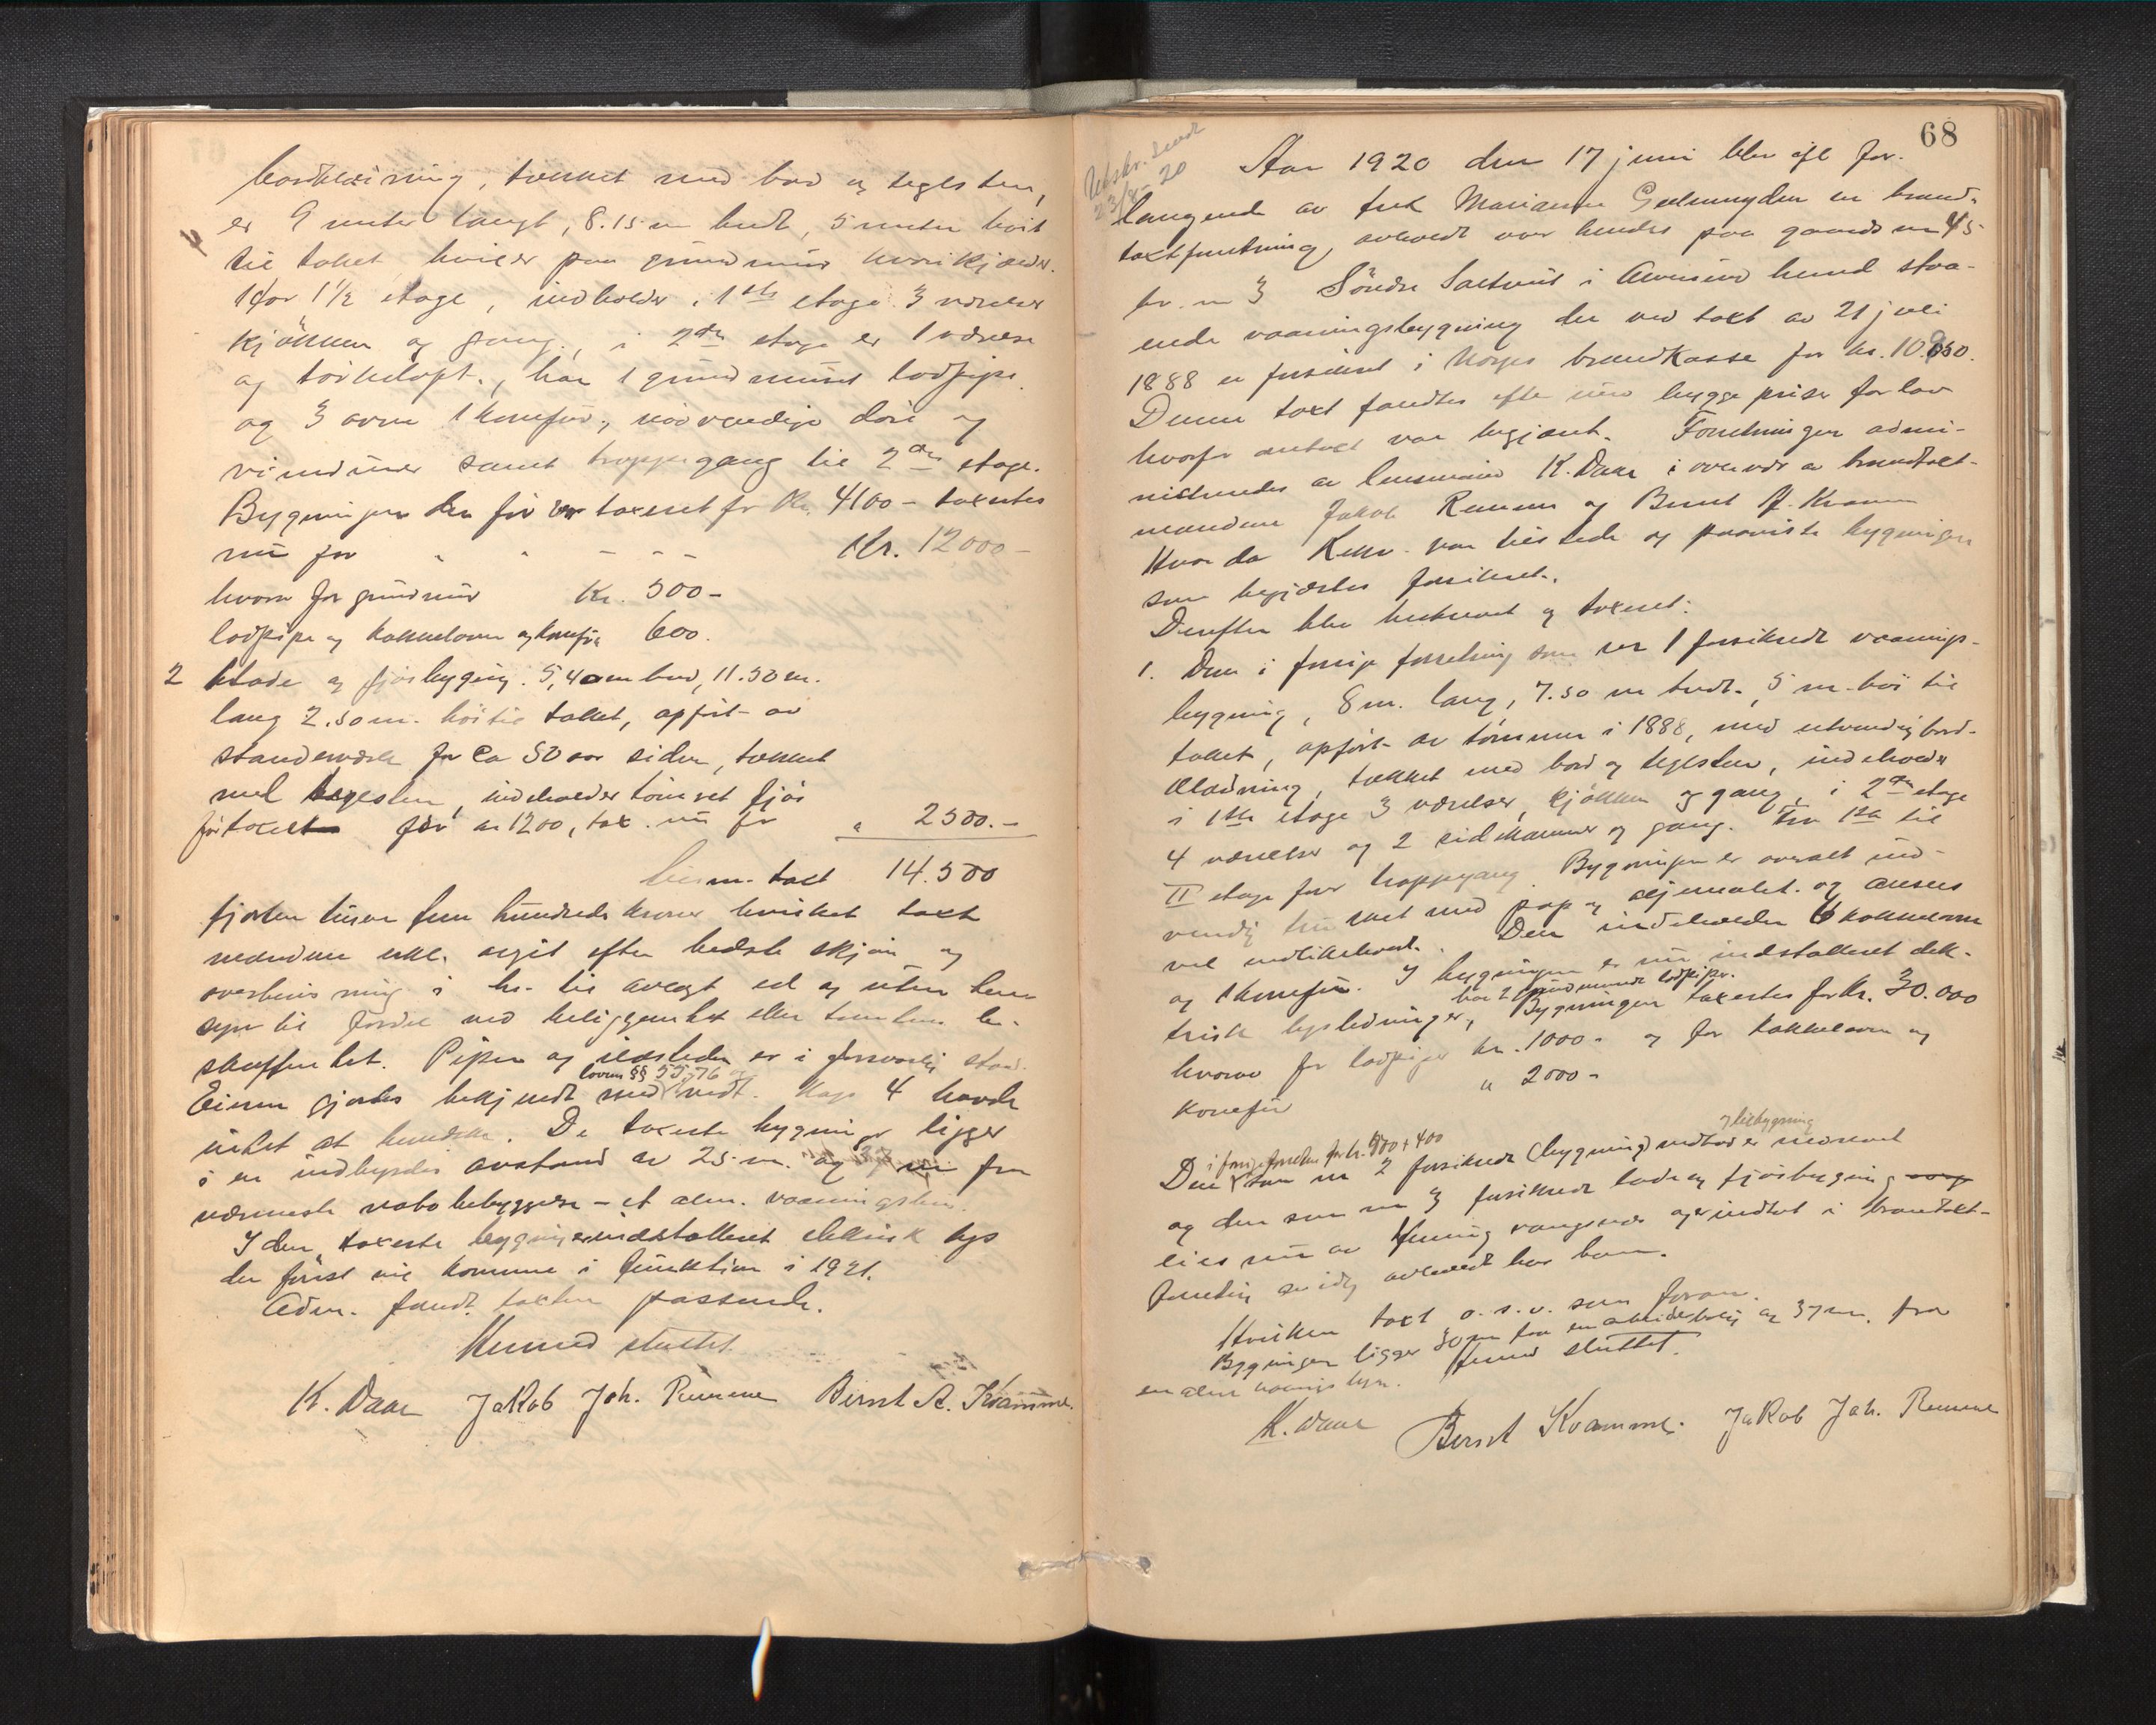 bordklædning, tækket med bord og teglsten,
er 9 meter langt, 8.15 m bredt, 5 meter høit
til taket, hviler paa grundmur
1 for 1½ etage, indholder i 1ste etage 3 værelser
kjøkken og gang, i 2den etage er 1 værelse
og tørkeloft, har 1 grundmuret lodpipe
og 3 ovne 1 komfur, nødvendige døre og
vinduer samt trappegang til 2den etage.
Bygningen den før var taxeret for Kr. 4100 - taxertes
nu for - - - Kr. 12000 -
hvorav for grundmur Kr. 500 -
lodpipe og kakkelovne og komfur 600.
2 Lade og fjøsbygning 5,40 m bred, 11.50 m.
lang 2.50 m. høi til taket, opført av
standerværk for ca 50 aar siden, tækket
med teglsten, indeholder tømret fjøs
før taxert for kr 1200, tax. nu for " 2500.-
taxt 14.500
fjorten tusen fem hundrede kroner hvilket taxt
mændene erkl. avgit efter bedste skjøn og
overbevisning i h. til avlagt ed og uten hen
syn til fordel ved beliggenhet eller tomtens be-
skaffenhet. Piper og ildsteder er i forsvarlig stand.
lovens §§ 55, 76
Eieren gjortes bekjendt med vedt. Kap 4 havde
intet at bemerke. De taxerte bygninger ligger
i en indbyrdes avstand av 25 m. og 37 m fra
nærmeste nabobebyggelse - et alm. vaaningshus.
I den taxerte bygning er indstalleret elektrisk lys
der først vil komme i funktion i 1921.
Adm. fandt taxten passende.
Hermed sluttet
K. Daae Jakob Joh. Rumme Bernt A. Kvamme.
68
Utskr. sendt
23/8-20
Aar 1920 den 17 juni blev efter for-
langende av frk Marianne Geelmuyden en brand-
taxtforretning avholdt over hendes paa gaards nr 45
br. nr 3 Søndre Saltvik i herred staa-
ende vaaningsbygning der ved taxt av 21 juli
1888 er forsikret i Norges brandkasse for kr. 10.850.
Denne taxt fandtes efter nuv bygge priser for lav
hvorfor omtaxt var begjært. Forretningen admi-
nistreredes av lensmand K. Daae i overvær av brandtaxt-
mændene Jakob Rumme og Bernt A. Kvamme
Hvor da Rekv. var tilstede og paaviste bygningen
som begjærtes forsikret.
Derefter blev beskrevet og taxeret:
1. Den i forrige forretning som nr 1 forsikrede vaanings-
bygning, 8 m. lang, 7.50 m bredt. 5 m. høi til
taket, opført av tømmer i 1888, med utvendig bord-
klædning, tækket med bord og teglsten, indeholder
i 1ste etage 3 værelser, kjøkken og gang, i 2den etage
4 værelser og 2 sidekammer og gang. Fra 1ste til
II etage fører trappegang. Bygningen er overalt ind-
vendig trukket med pap og oljemalet. og ansees
vel vedlikeholdt. Den indeholder 6 kakkelovne
og 1 komfur. I bygningen er nu indstalleret elek-
har 2 grundmurede lodpiper.
trisk lysledninger, Bygningen taxertes for Kr. 30.000
hvorav for lodpiper kr. 1000 - og for kakkelovne og
komfur " 2000 -
og tilbygning
i forrige forretn. for kr. 900 + 400
Den som nr 2 forsikrede (bygning) er nedrevet
og den som nr 3 forsikrede lade og fjøsbygning
eies nu av Henning og er indtat i brandtaxt-
forretning avholdt hos ham.
Hvilken taxt o.s.v. som foran.
Bygningen ligger 30 m fra en arbeiderbolig og 37 m. fra
en alm vaanings bygn. Hermed sluttet.
K. Daae Bernt Kvamme. Jakob Joh. Rumme